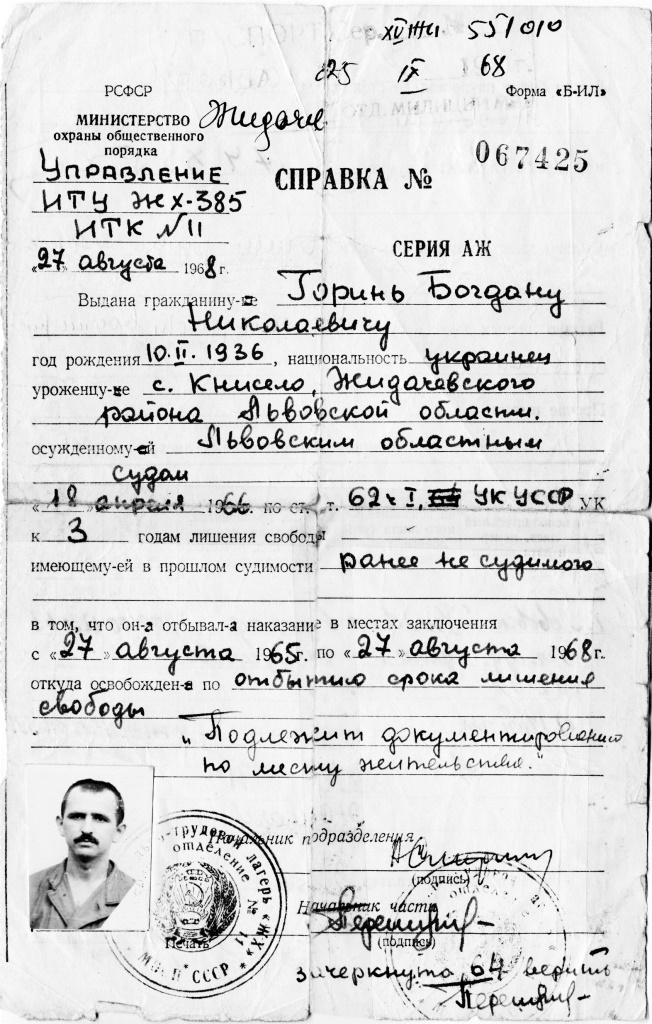 551010
25 IX 68
РСФСР
Форма «Б-ИЛ»
МИНИСТЕРСТВО
Жидачев
охраны общественного
порядка
067425
УПРАВЛЕНИЕ
СПРАВКА №
ИТУ ЖХ-385
ИТК №11
СЕРИЯ АЖ
«27» августа 1968 г.
Выдана гражданину-ке Горинь Богдану
Николаевичу
год рождения 10.II.1936, национальность украинец
уроженцу-ке с. Книсело, Жидачевского
района Львовской области.
осужденному-ей Львовским областным
судом
«18» апреля 1966. по ст. ст. 62 ч I, УК УССР УК
к 3 годам лишения свободы
имеющему-ей в прошлом судимости ранее не судимого
в том, что он-а отбывал-а наказание в местах заключения
с «27» августа 1965 г. по «27» августа 1968 г.
откуда освобожден-а по отбытию срока лишения
свободы
„Подлежит документированию
по месту жительства."
Начальник подразделения
(подпись)
Начальник части
(подпись)
Печать
трудовой лагерь «ЖХ»
отделение № 11
СССР
зачеркнуто 64 верить